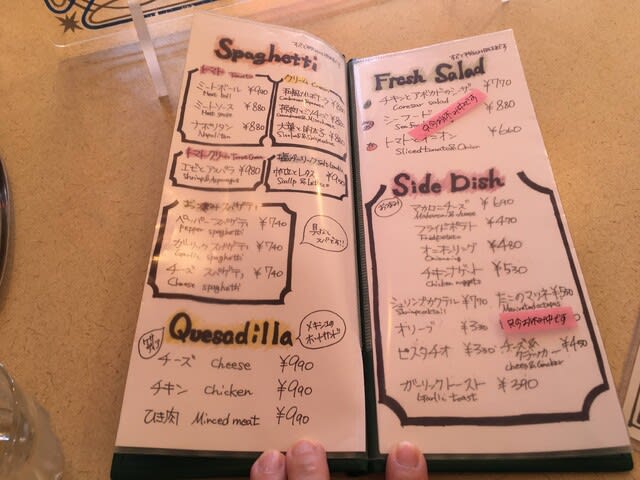 Spaghetti
トマト Tomato
ミートボール ¥900
Meat ball
ミートソース ¥880
Meat sauce
ナポリタン ¥880
Napolitan
クリーム Cream
¥880
トマトクリーム Tomato Cream
エビとアスパラ ¥980
Shrimp & Asparagus
帆立とレタス
Scallop & Lettuce
ペッパースパゲティ ¥740
Pepper spaghetti
ガーリックスパゲティ ¥740
Garlic spaghetti
チーズ スパゲティ ¥740
Cheese spaghetti
Quesadilla
メキシコの
ホットサンド
チーズ Cheese ¥990
チキン Chicken ¥990
ひき肉 Minced meat ¥990
Fresh Salad
チキンとアボカドのシーザー ¥770
Caesar salad
シーフード ¥880
只今お休み中です
トマトとオニオン ¥660
Sliced tomato & Onion
Side Dish
マカロニチーズ ¥690
Macaroni & cheese
フライドポテト ¥470
Fried potato
オニオンリング ¥480
Onion ring
チキンナゲット ¥530
Chicken nuggets
シュリンプカクテル ¥770
Shrimp cocktail
たこのマリネ ¥550
Marinated octopus
オリーブ ¥330
只今お休み中です
ピスタチオ ¥330
チーズ&
クラッカー ¥450
Cheese & Cracker
ガーリックトースト ¥390
Garlic toast